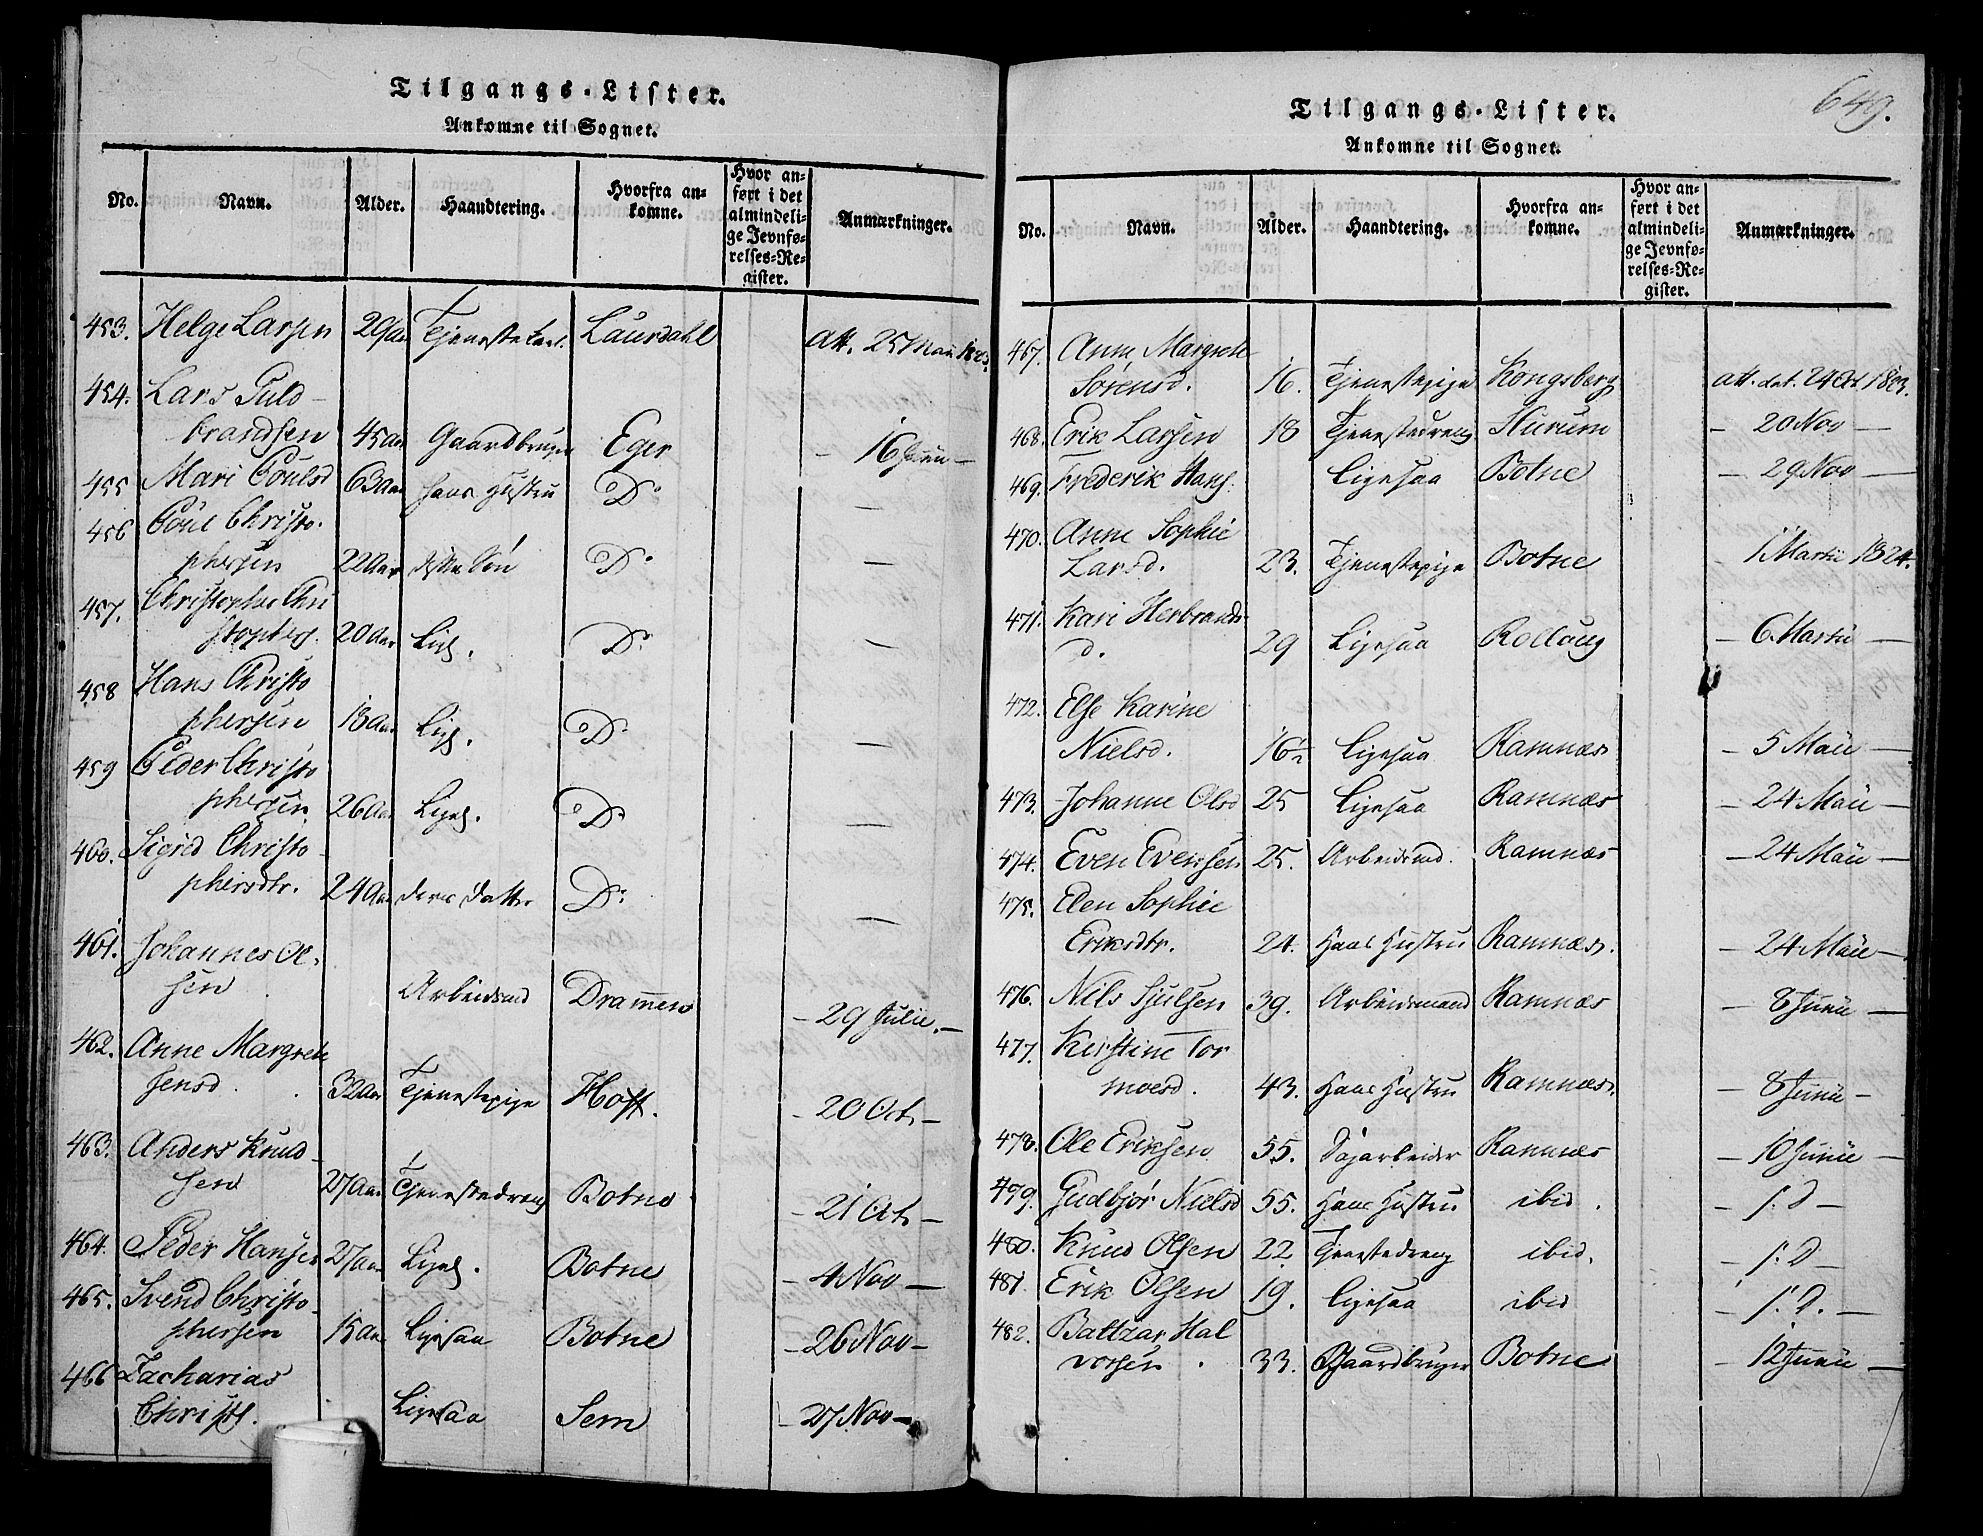 Tilgangs-Lister.
Ankomne til Sognet.
No. Navn. Alder. Haandtering. Hvorfra an-
komne. Hvor an-
ført i det
almindeli-
ge Jevnfø-
relses-Re-
gister. Anmærkninger.
453. Helge Larsen 29 Aar Tjenestekarl. Laurdahl att. 25 Maii 1823.
454. Lars Guld-
brandsen 45 Aar Gaardbruger Eger - 16 Junii -
455 Mari Pouls 63 Aar Hans Hustru D° -
456 Poul Christo-
phersen 22 Aar Søn D° -
457. Christopher Chri
stophers. 20 Aar Lige. D° -
458 Hans Christo
phersen 18 Aar Lige. D° -
459 Peder Christo
phersen 26 Aar Liges. D° -
460. Sigrid Christo-
phersdtr. 24 Aar deres Datter D° -
461. Johannes Ol-
sen Arbeidsmd Drammen - 29 Julii. -
462. Anne Margrete
Jensd. 32 Aar Tjenestepige Hoff. - 20 Oct -
463. Anders Knud-
sen 27 Aar Tjenestedreng Botne - 21 Oct -
464. Peder Hansen 27 Aar Liges. Botne - 4 Nov -
465. Svend Christo-
phersen 15 Aar Ligesaa Botne - 26 Nov -
466 Zacharias
Christ. Ligesaa Sem - 27 Nov -
649.
Tilgangs-Lister.
Ankomne til Sognet.
No. Navn. Alder. Haandtering. Hvorfra an-
komne. Hvor an-
ført i det
almindeli-
ge Jevnfø-
relses-Re-
gister. Anmærkninger.
467. Anne Margrete
Sörensd. 16. Tjenestepige Kongsberg att. dat. 24 Oct 1823.
468. Erik Larsen 18 Tjenestedreng Hurum - 20 Nov -
469. Frederik Hans. Ligesaa Botne - 29 Nov -
470. Anne Sophie
Larsd. 23. Tjenestepige Botne - 1 Martii 1824.
471. Kari Herbrands-
d. 29 Ligesaa Rollaug - 6 Martii -
472. Else Karine
Nielsd. 16½ Ligesaa Ramnæs - 5 Maii -
473. Johanne Olsd 25 Ligesaa Ramnæs - 24 Maii -
474. Even Evensen 25. Arbeidsmd. Ramnæs - 24 Maii -
475. Elen Sophie
Eriksdtr. 24. Hans Hustru Ramnæs. - 24 Maii -
476. Nils Hjulsen 39. Arbeidsmand Ramnæs - 8 Junii -
477. Kirstine Tor
moesd. 43. Hans Hustru Ramnæs. - 8 Junii -
478. Ole Eriksen 55. Sagarbeider Ramnæs - 10 Junii -
479. Gudbjör Nielsd 55. Hans Hustru ibid. - 1. D -
480. Knud Olsen 22. Tjenestedreng ibid. - 1. D -
481. Erik Olsen 19. Ligesaa ibid - 1. D. -
482. Baltzar Hal
vorsen. 33. Gaardbruger Botne - 12 Junii -